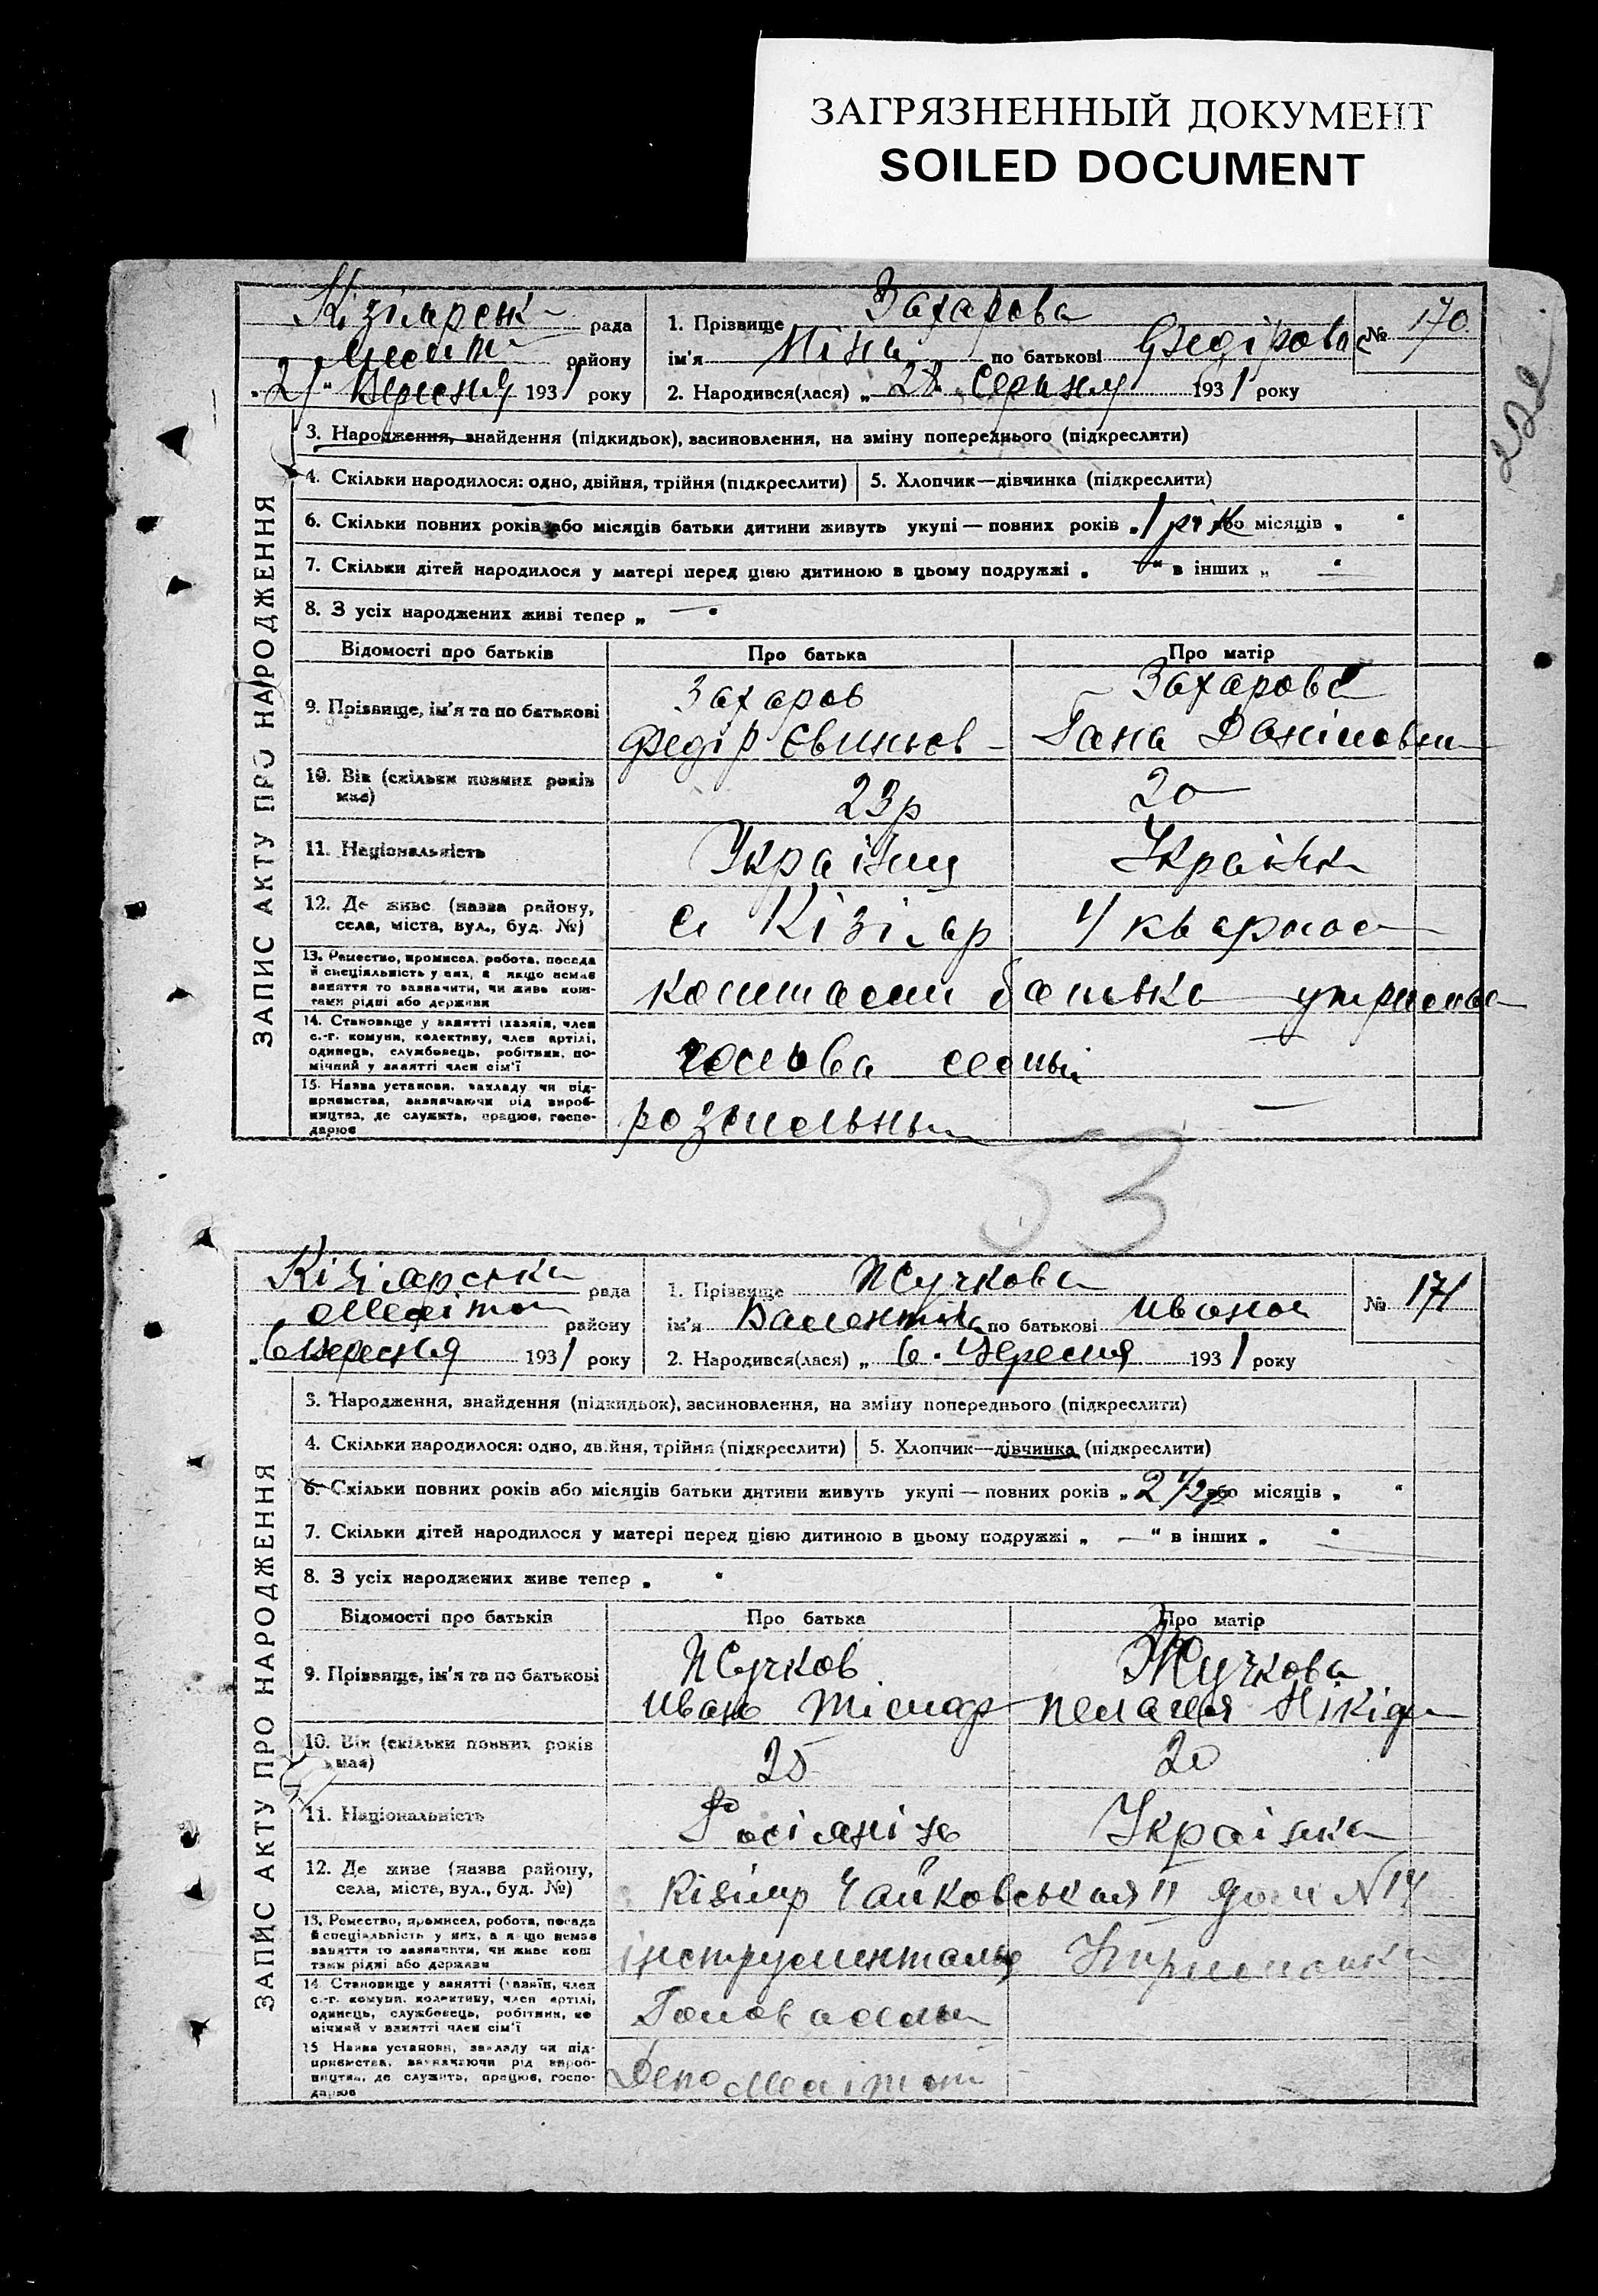 ЗАГРЯЗНЕННЫЙ ДОКУМЕНТ
SOILED DOCUMENT
ЗАПИС АКТУ ПРО НАРОДЖЕННЯ
рада
району
Вересня 1931 року
1. Прізвище Захарова
ім'я по батькові Федірова
2. Народився(лася) „28„ Серпня 1931 року
№ 170
3. Народження, знайдення (підкидьок), засиновлення, на зміну попереднього (підкреслити)
4. Скільки народилося: одно, двійня, трійня (підкреслити)
5. Хлопчик—дівчинка (підкреслити)
6. Скільки повних років або місяців батьки дитини живуть укупі — повних років „1 рік або місяців „ "
7. Скільки дітей народилося у матері перед цією дитиною в цьому подружжі „ — " в інших „ — "
8. З усіх народжених живі тепер „ — "
Відомості про батьків
Про батька
Про матір
9. Прізвище, ім'я та по батькові
Захаров
Федір
Захарова
Гана
10. Вік (скільки повних років має)
23р
20
11. Національність
Українц
Українк
12. Де живе (назва району, села, міста, вул., буд. №)
с Кізіяр
13. Ремество, промисел, робота, посада й спеціяльність у них, а якщо немає заняття то зазначити, чи живе коштами рідні або держави
14. Становище у занятті (хазяїн, член с.-г. комуни, колективу, член артілі, одинець, службовець, робітник, помічний у занятті член сім'ї
голова
15. Назва установи, закладу чи підприємства, зазначаючи рід виробництва, де служить, працює, господарює
53
ЗАПИС АКТУ ПРО НАРОДЖЕННЯ
Кізіярська рада
Меліто району
„6 Вересня 1931 року
1. Прізвище Жучкова
ім'я Валентина по батькові Иванов
2. Народився(лася) „6„ Вересня 1931 року
№ 171
3. Народження, знайдення (підкидьок), засиновлення, на зміну попереднього (підкреслити)
4. Скільки народилося: одно, двійня, трійня (підкреслити)
5. Хлопчик—дівчинка (підкреслити)
6. Скільки повних років або місяців батьки дитини живуть укупі — повних років „2 1/2р або місяців „ "
7. Скільки дітей народилося у матері перед цією дитиною в цьому подружжі „ — " в інших „ "
8. З усіх народжених живе тепер „ "
Відомості про батьків
Про батька
Про матір
9. Прізвище, ім'я та по батькові
Жучков
Иван
Жучкова
Пелагея Нікіф
10. Вік (скільки повних років має)
25
20
11. Національність
Росіянін
Українка
12. Де живе (назва району, села, міста, вул., буд. №)
Кізіяр Чайковськая 11 дом №14
13. Ремество, промисел, робота, посада й спеціяльність у них, а якщо немає заняття то зазначити, чи живе коштами рідні або держави
14. Становище у занятті (хазяїн, член с.-г. комуни, колективу, член артілі, одинець, службовець, робітник, помічний у занятті член сім'ї
Голова
15. Назва установи, закладу чи підприємства, зазначаючи рід виробництва, де служить, працює, господарює
Депо